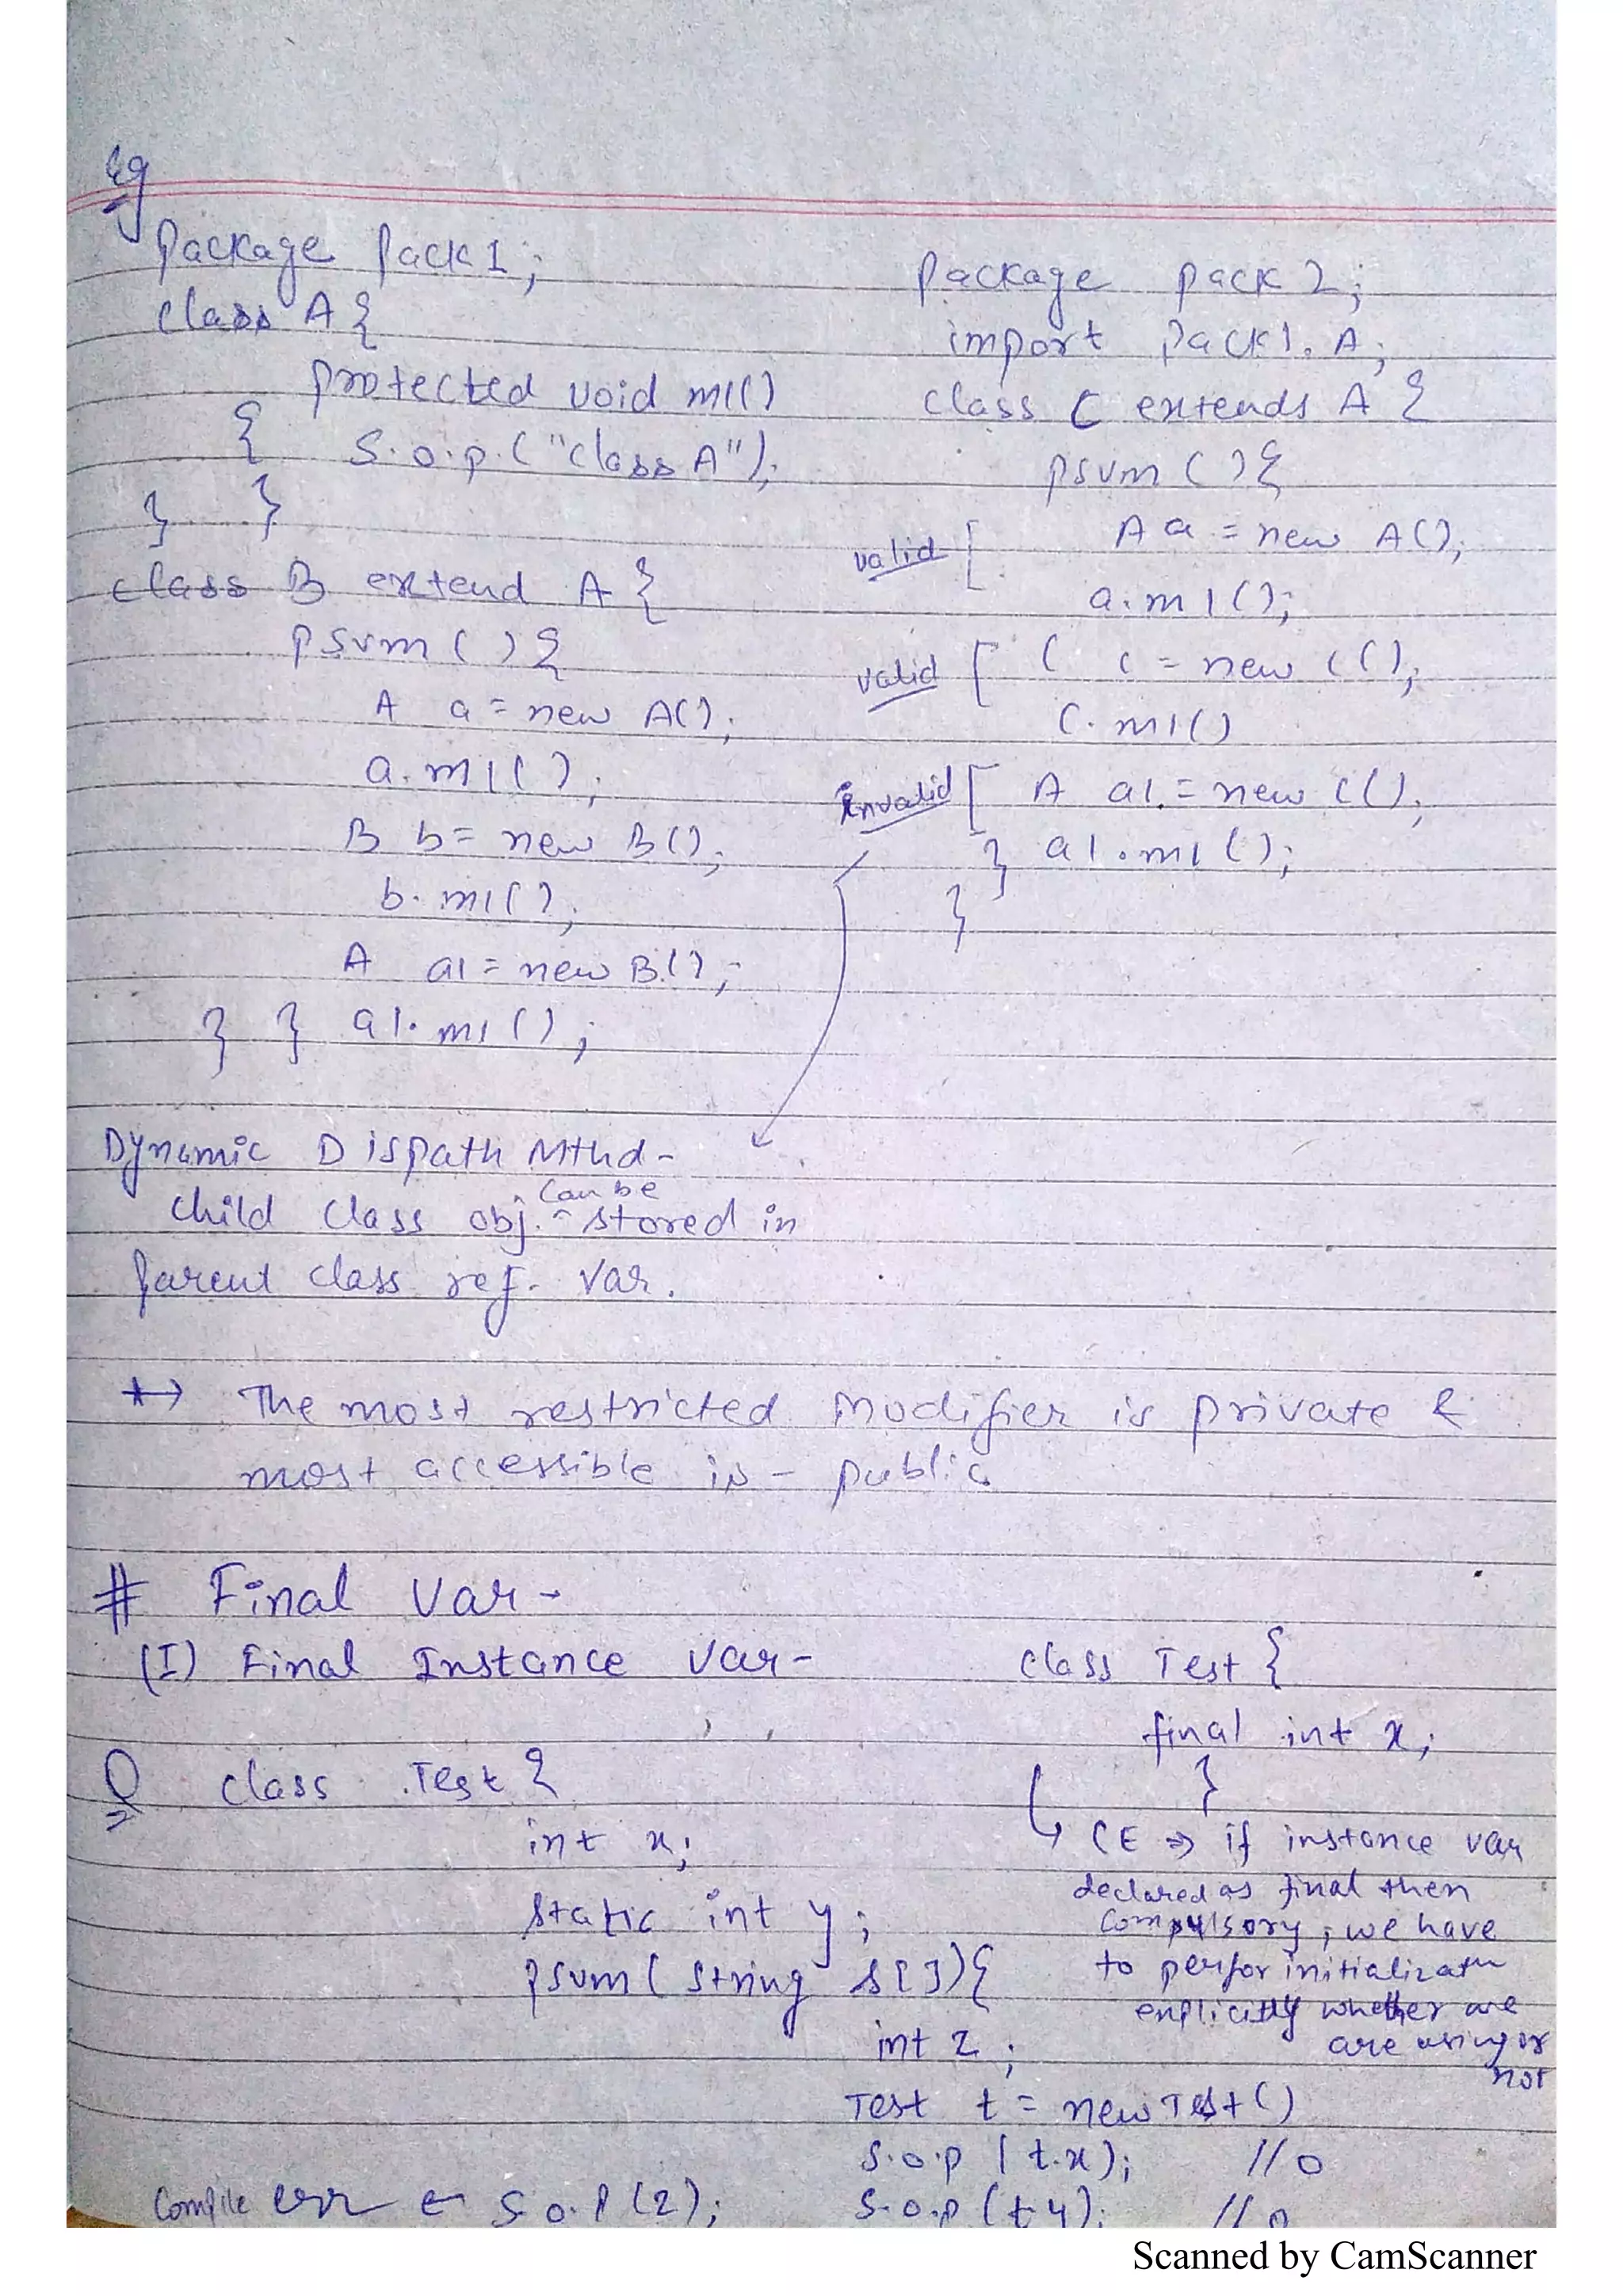 Eg
Package Pack1;
class A {
protected void m1()
{ S.o.p.("class A");
} }
class B extend A {
psvm ( ) {
A a = new A();
a.m1( );
B b = new B();
b. m1( );
A a1 = new B();
} } a1. m1 ();
Package pack 2;
import Pack1. A;
class C extends A {
psvm ( ) {
valid [ A a = new A();
a. m1();
valid [ C c = new C();
C. m1()
invalid [ A a1. = new C();
} a1.m1 ();
}
Dynamic Dispath Mthd -
child class obj. can be stored in
parent class ref. var.
*→ The most restricted modifier is private &
most accessible is - public
# Final var -
(I) Final Instance var -
class Test {
final int x;
}
↳ CE ⇒ if instance var
declared as final then
compulsory, we have
to perfor initializatn
explicitly whether are
are using or
not
Q class Test {
int x;
static int y;
psvm ( string s[]) {
int z;
Test t = new Test ()
S.o.p ( t.x); // 0
S.o.p (t.y); // 0
Compile err ← S.o.p (z);
Scanned by CamScanner